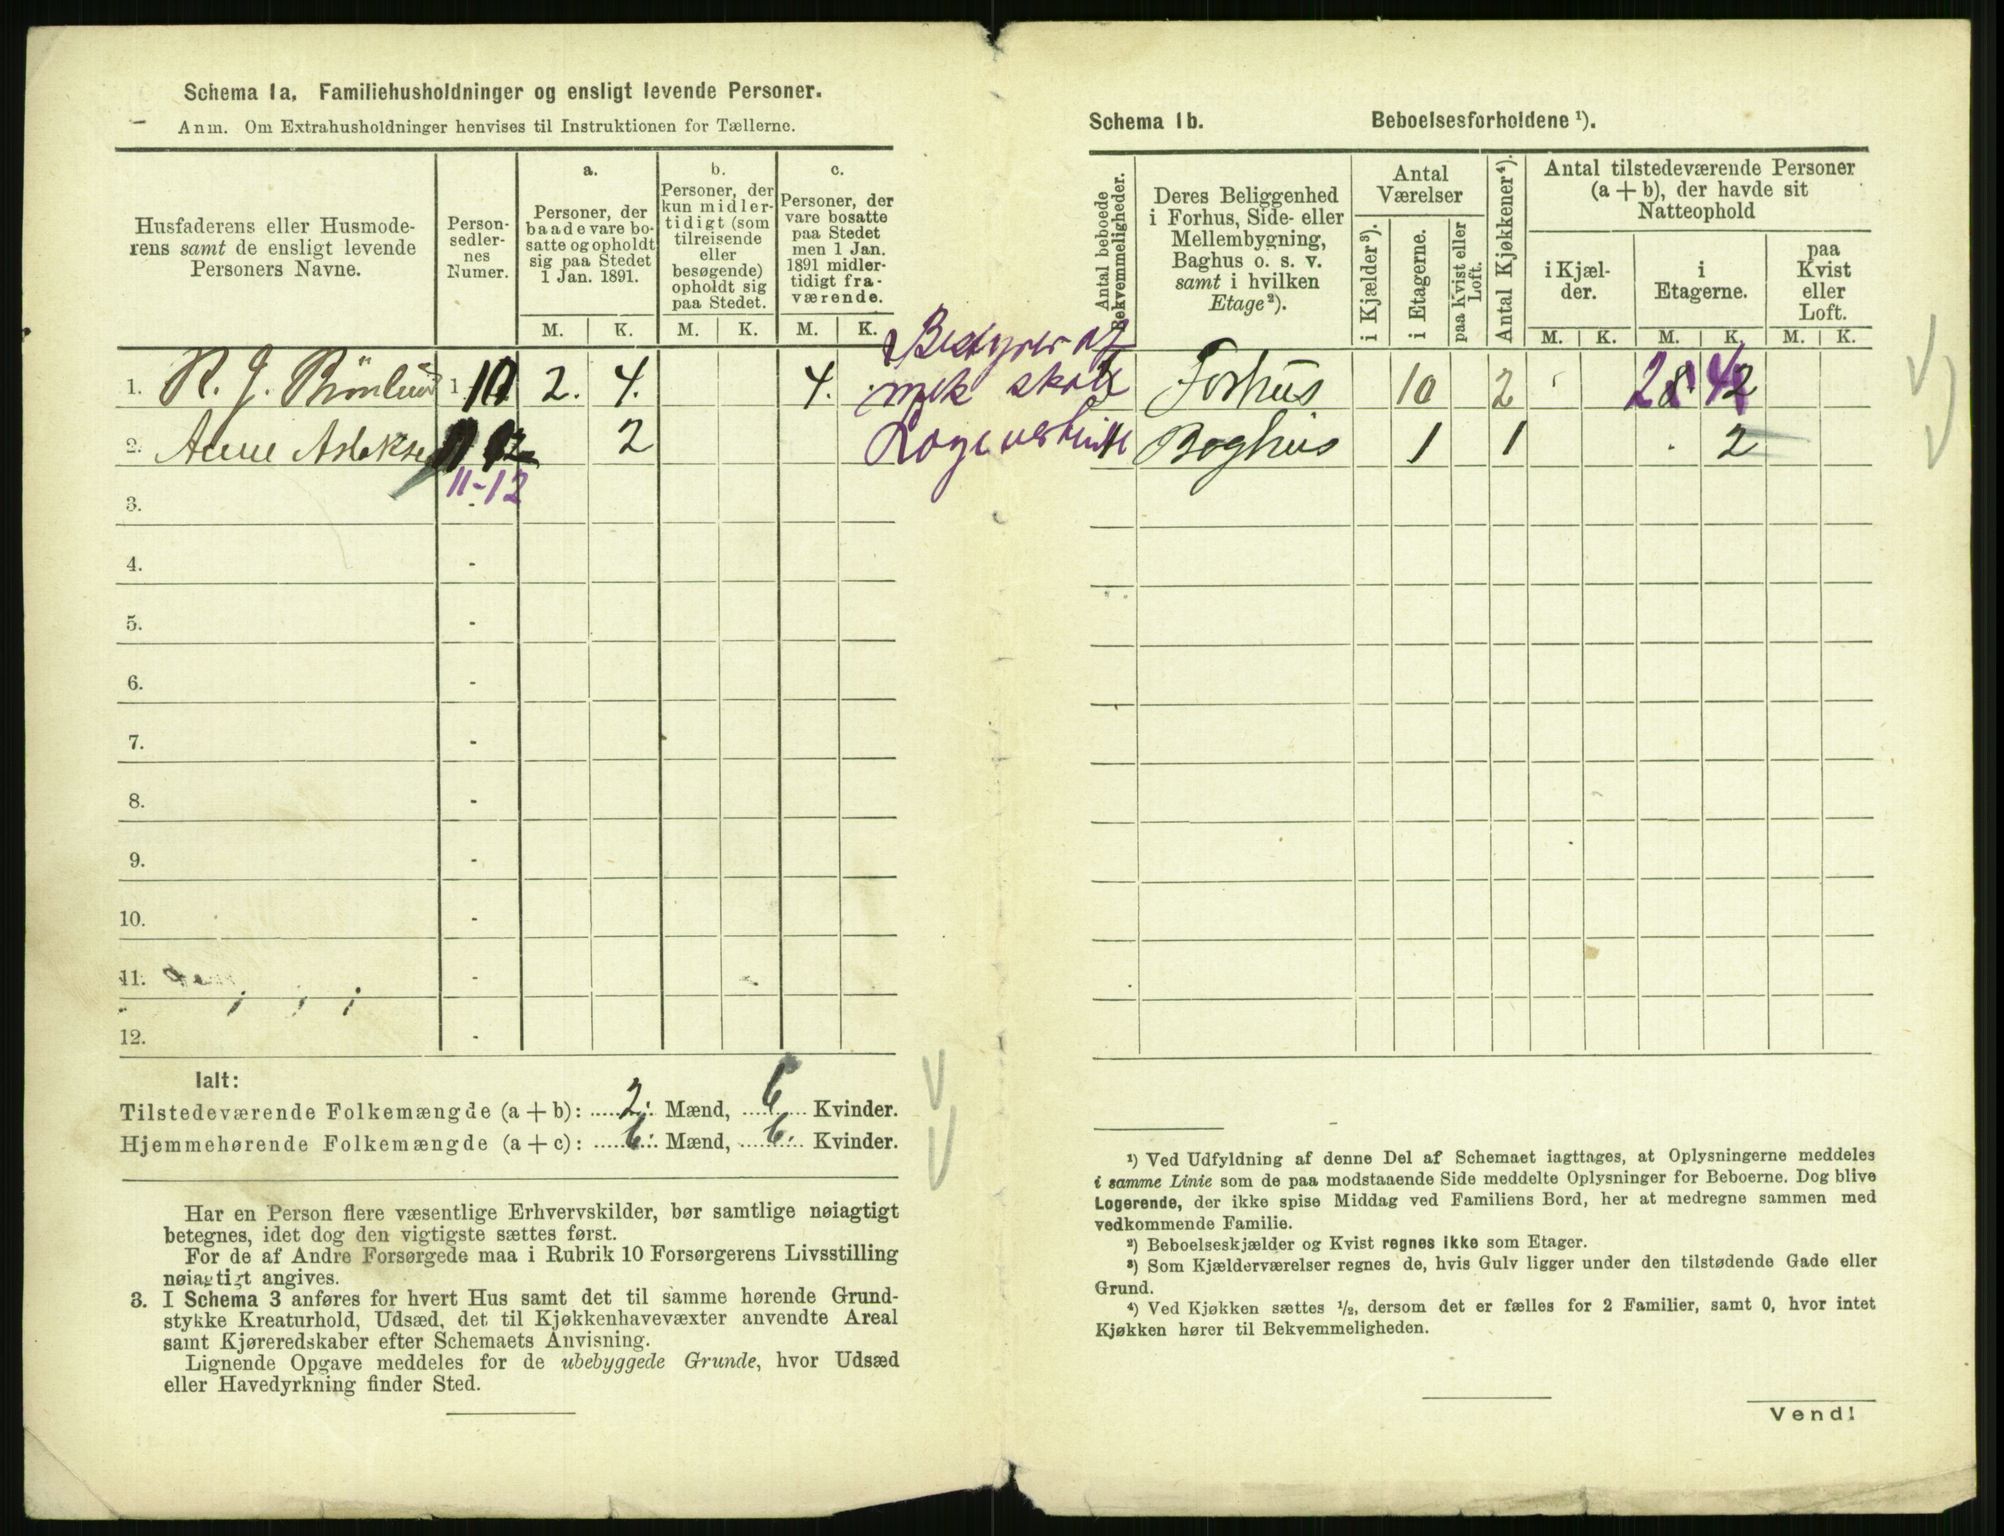 Schema 1a. Familiehusholdninger og ensligt levende Personer.
Anm. Om Extrahusholdninger henvises til Instruktionen for Tællerne.
Husfaderens eller Husmoderens samt de ensligt levende Personers Navne.
Personsedlernes Numer.
a. Personer, der baade vare bosatte og opholdt sig paa Stedet 1 Jan. 1891.
b. Personer, der kun midlertidigt (som tilreisende eller besøgende) opholdt sig paa Stedet.
c. Personer, der vare bosatte paa Stedet men 1 Jan. 1891 midlertidigt fraværende.
M. K. M. K. M. K.
1. R. J. 1 - 10 2. 4. 4.
Bestyrer af
mek skole
2. Anne 2
11-12
3. -
4. -
5. -
6. -
7. -
8. -
9. -
10. -
11. -
12. -
Ialt:
Tilstedeværende Folkemængde (a + b): 2. Mænd, 6 Kvinder.
Hjemmehørende Folkemængde (a + c): 6. Mænd, 6. Kvinder.
Har en Person flere væsentlige Erhvervskilder, bør samtlige nøiagtigt
betegnes, idet dog den vigtigste sættes først.
For de af Andre Forsørgede maa i Rubrik 10 Forsørgerens Livsstilling
nøiagtigt angives.
3. I Schema 3 anføres for hvert Hus samt det til samme hørende Grund-
stykke Kreaturhold, Udsæd, det til Kjøkkenhavevæxter anvendte Areal
samt Kjøreredskaber efter Schemaets Anvisning.
Lignende Opgave meddeles for de ubebyggede Grunde, hvor Udsæd
eller Havedyrkning finder Sted.
Schema 1b. Beboelsesforholdene ¹).
Antal beboede Bekvemmeligheder.
Deres Beliggenhed i Forhus, Side- eller Mellembygning, Baghus o. s. v. samt i hvilken Etage²).
Antal Værelser
i Kjælder³).
i Etagerne.
paa Kvist eller Loft.
Antal Kjøkkener⁴).
Antal tilstedeværende Personer (a + b), der havde sit Natteophold
i Kjælder.
i Etagerne.
paa Kvist eller Loft.
M. K. M. K. M. K.
Forhus 10 2 2 4
Baghus 1 1 . 2
¹) Ved Udfyldning af denne Del af Schemaet iagttages, at Oplysningerne meddeles
i samme Linie som de paa modstaaende Side meddelte Oplysninger for Beboerne. Dog blive
Logerende, der ikke spise Middag ved Familiens Bord, her at medregne sammen med
vedkommende Familie.
²) Beboelseskjælder og Kvist regnes ikke som Etager.
³) Som Kjælderværelser regnes de, hvis Gulv ligger under den tilstødende Gade eller
Grund.
⁴) Ved Kjøkken sættes ½, dersom det er fælles for 2 Familier, samt 0, hvor intet
Kjøkken hører til Bekvemmeligheden.
Vend!